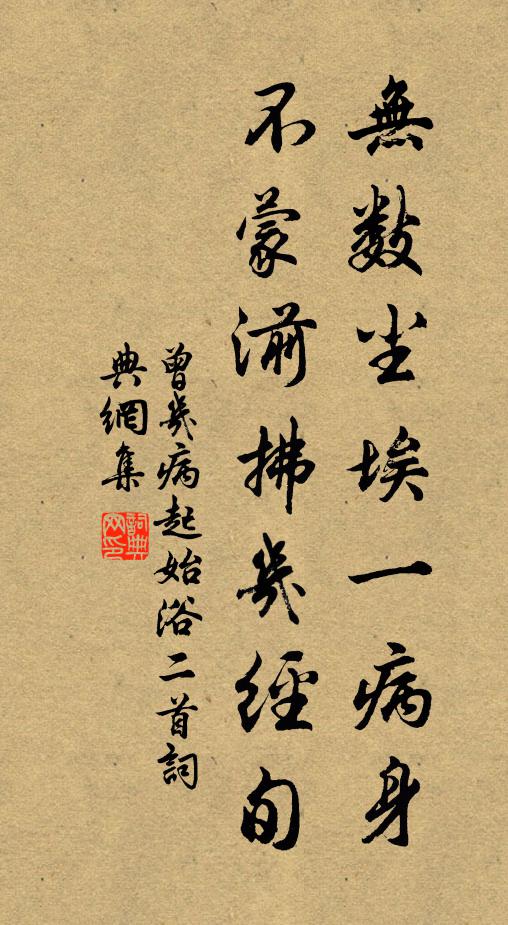 無數尘埃一病身
不蒙湔拂幾經旬
曾幾病起始浴二首詞
典網集
詞典
网印